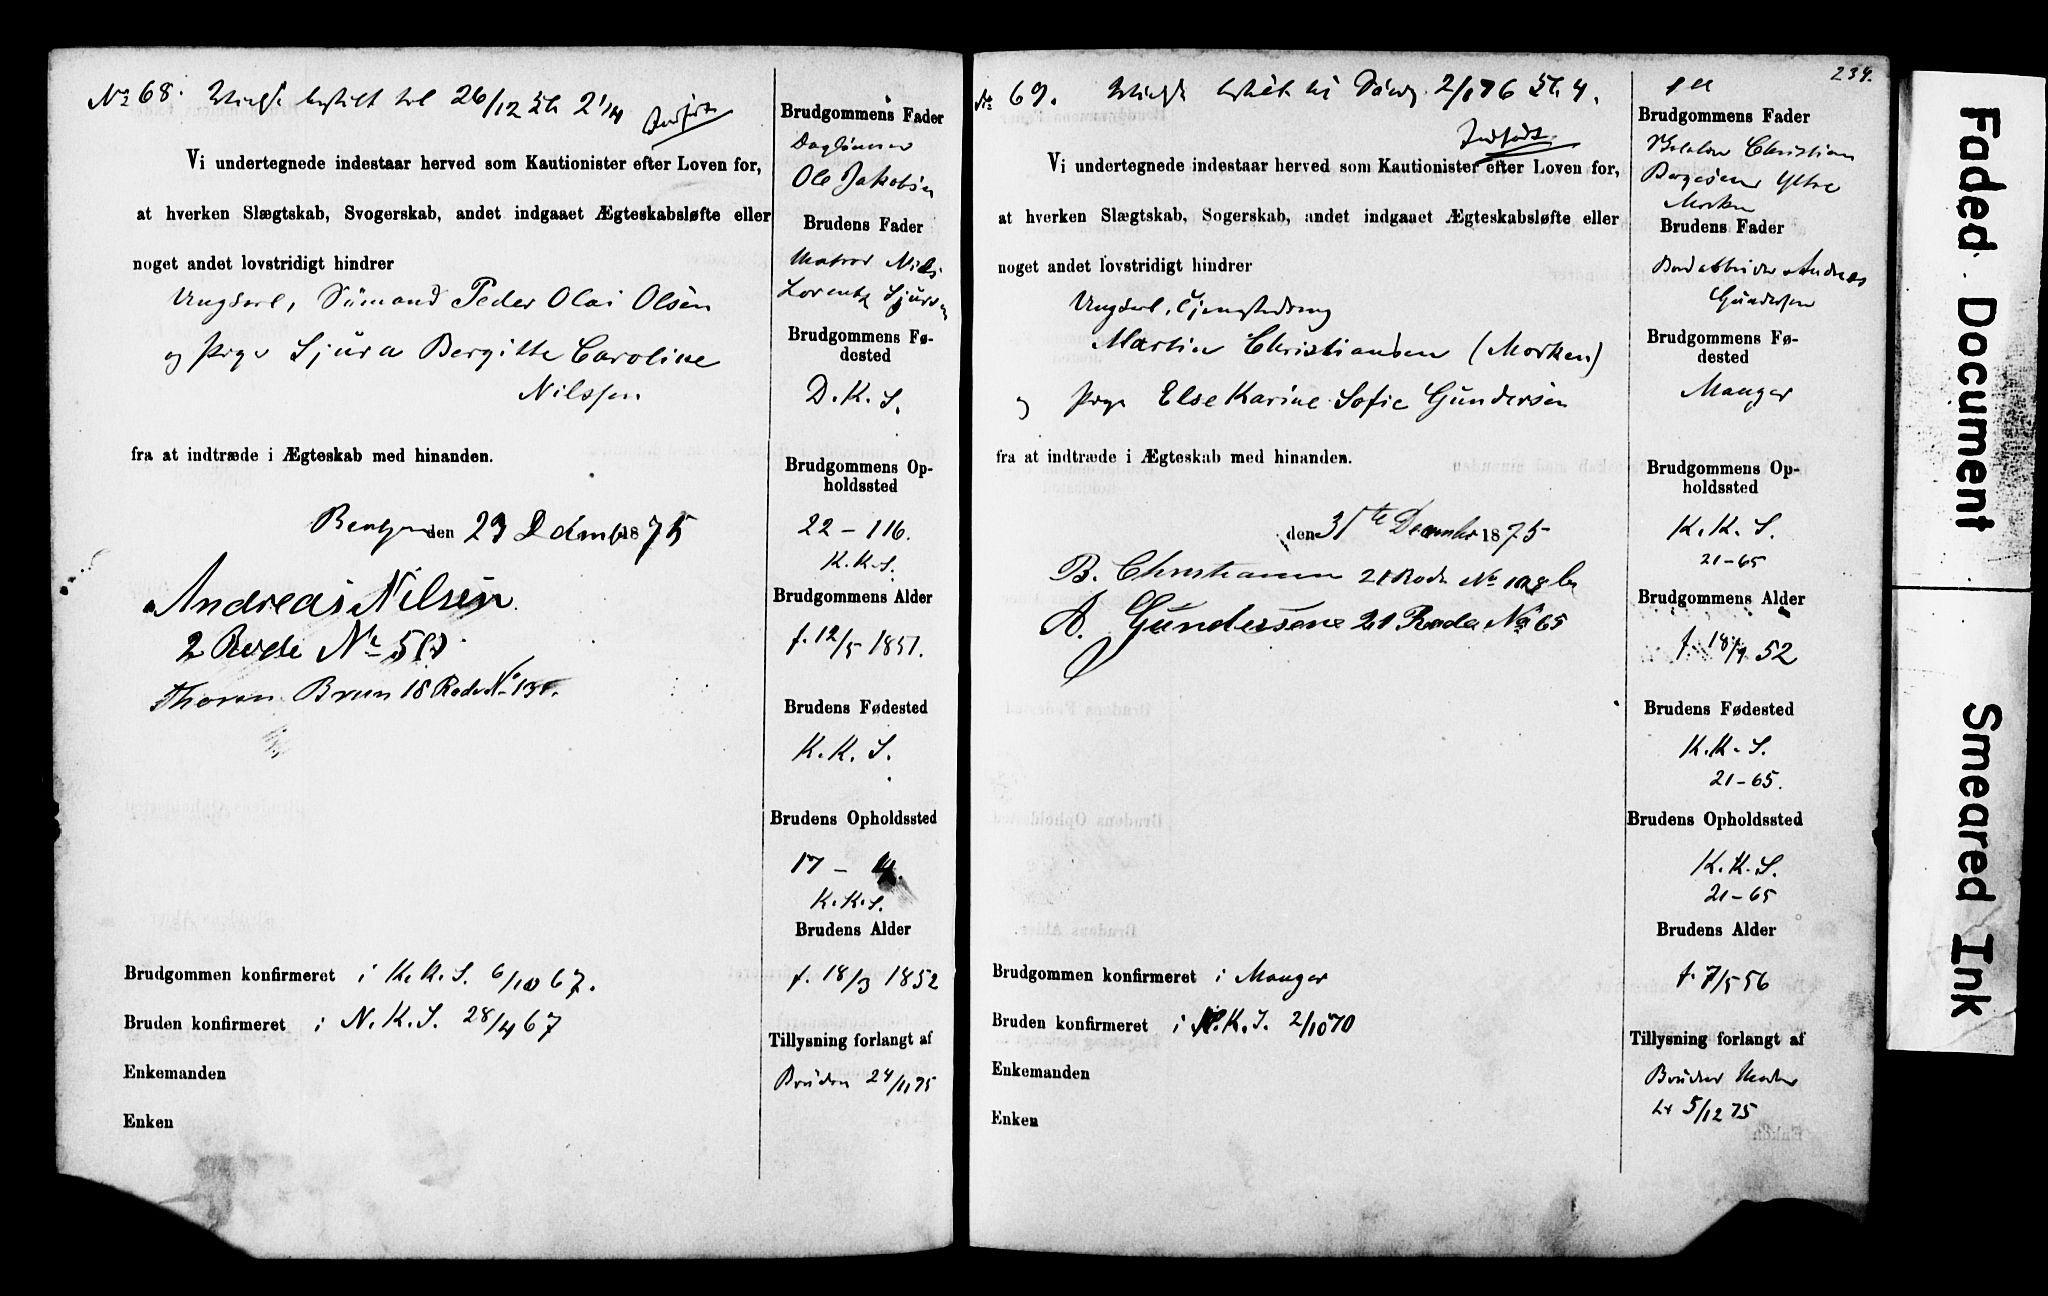 No 68. bestilt til 26/12 Kl 2 1/4
Indført
Vi undertegnede indestaar herved som Kautionister efter Loven for,
at hverken Slægtskab, Svogerskab, andet indgaaet Ægteskabsløfte eller
noget andet lovstridigt hindrer
Ungkarl, Sömand Peder Olai Olsen
og Pige Sjura Bergitte Caroline
Nilssen
fra at indtræde i Ægteskab med hinanden.
Bergen den 23 Decemb 1875
Andreas Nilsen
2 Rode No
Brun 18 Rode No
Brudgommen konfirmeret i K.K.S. 6/10 67.
Bruden konfirmeret i N.K.S. 28/4 67
Enkemanden
Enken
Brudgommens Fader
Daglønner
Ole Jakobsen
Brudens Fader
Matros Nils
Lorentz Sjursen
Brudgommens Fø-
dested
D.K.S.
Brudgommens Op-
holdssted
22 - 116.
K.K.S.
Brudgommens Alder
f. 12/5 1851.
Brudens Fødested
K.K.S.
Brudens Opholdssted
17 -
K.K.S.
Brudens Alder
f. 18/3 1852
Tillysning forlangt af
Bruden 24/11 75
234.
No 69. bestilt til Søndg. 2/1 76 Kl. 4.
Indført
Vi undertegnede indestaar herved som Kautionister efter Loven for,
at hverken Slægtskab, Sogerskab, andet indgaaet Ægteskabsløfte eller
noget andet lovstridigt hindrer
Ungkarl, Tjenestedreng
Martin Christiansen (Morken)
og Pige Else Karine Sofie Gundersen
fra at indtræde i Ægteskab med hinanden.
den 31te December 1875
B. Christiansen 21 Rode No
A. Gundersene 21 Rode No 65
Brudgommen konfirmeret i Manger
Bruden konfirmeret i K.K.S. 2/10 70
Enkemanden
Enken
Brudgommens Fader
Christian
Børgesen Ytre
Morken
Brudens Fader
Bordarbeider Andreas
Gundersen
Brudgommens Fø-
dested
Manger
Brudgommens Op-
holdssted
K.K.S.
21-65
Brudgommens Alder
f. 18/9 52
Brudens Fødested
K.K.S.
21-65.
Brudens Opholdssted
K.K.S.
21-65
Brudens Alder
f. 7/5 56
Tillysning forlangt af
Brudens Moder
5/12 75
Faded Document
Smeared Ink